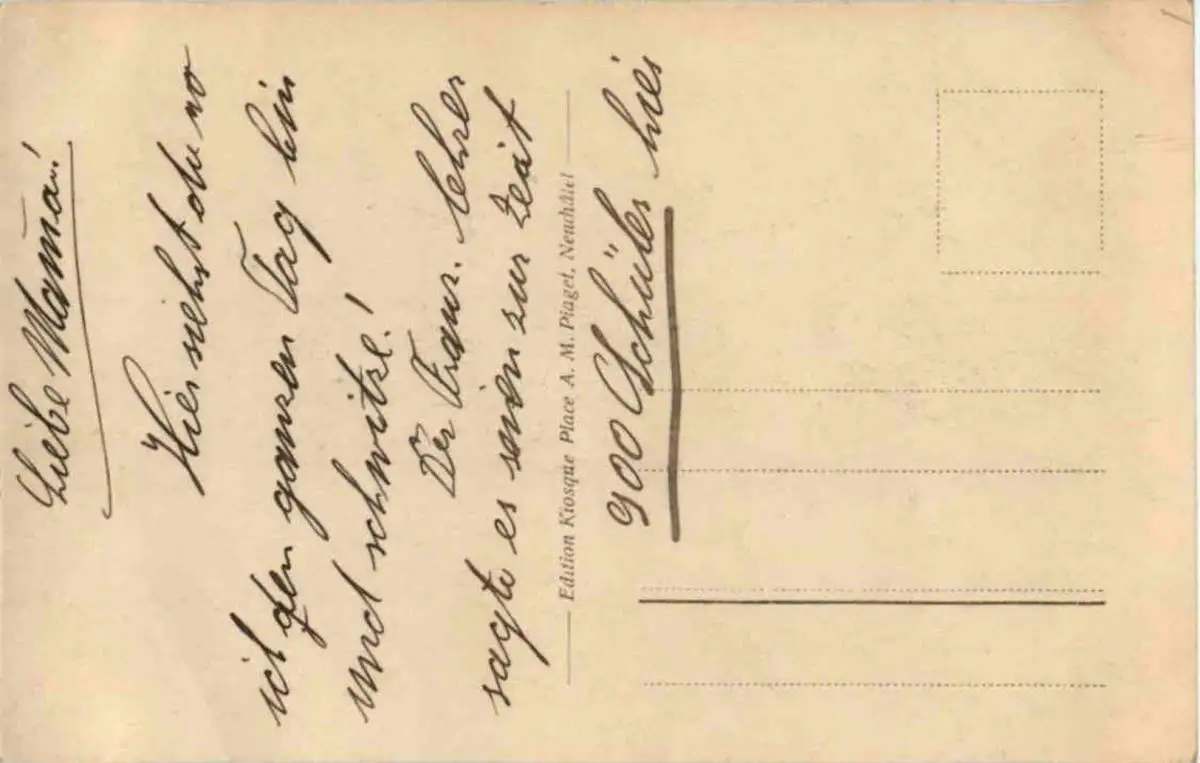 Liebe Mama!
Hier siehst du wo
ich den ganzen Tag bin
und schwitze!
Der Franz. lehrer
sagte es seien zur Zeit
900 Schüler hier
Edition Kiosque Place A. M. Piaget, Neuchâtel